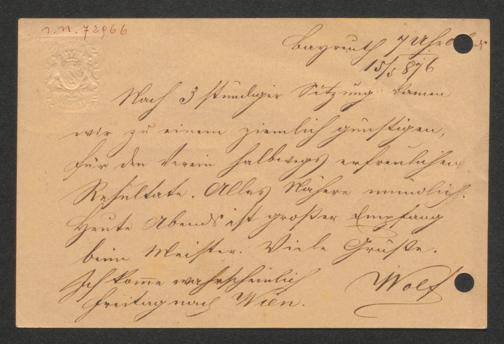 I.N. 72966
Bayreuth 7 Uhr
15/5 876
Nach 3 stündiger Sitzung kamen
wir zu einem ziemlich günstigen,
für den Verein halbwegs erfreulichen
Resultate. Alles Nähere mündlich.
Heute Abends ist großer Empfang
beim Meister. Viele Grüße.
Ich komme wahrscheinlich Wolf
Freitag nach Wien.